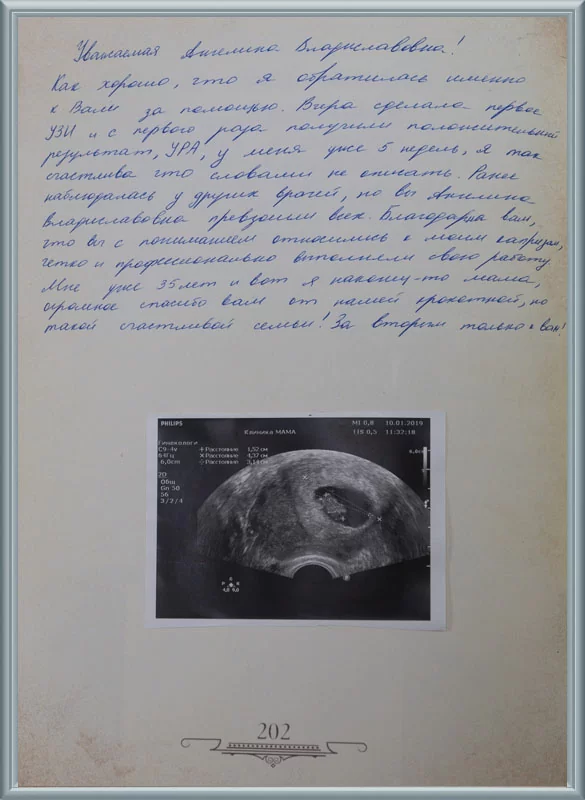 Уважаемая Ангелина Владиславовна!
Как хорошо, что я обратилась именно
к Вам за помощью. Вчера сделала первое
УЗИ и с первого раза получили положительный
результат, УРА, у меня уже 5 недель, я так
счастлива что словами не описать. Ранее
наблюдалась у других врачей, но вы Ангелина
Владиславовна превзошли всех. Благодарна вам,
что вы с пониманием относились к моим капризам,
четко и профессионально выполняли свою работу.
Мне уже 35 лет и вот я наконец-то мама,
огромное спасибо вам от нашей крохотной, но
такой счастливой семьи! За вторым только к вам!
PHILIPS
Клиника МАМА
MI 0,8 10.01.2019
TIS 0,5 11:32:18
Гинекологи
C9-4v + Расстояние 1,52 см
64Гц × Расстояние 4,37 см
6,0cm Расстояние 3,14 см
2D
Общ
Gn 50
56
3/2/4
202